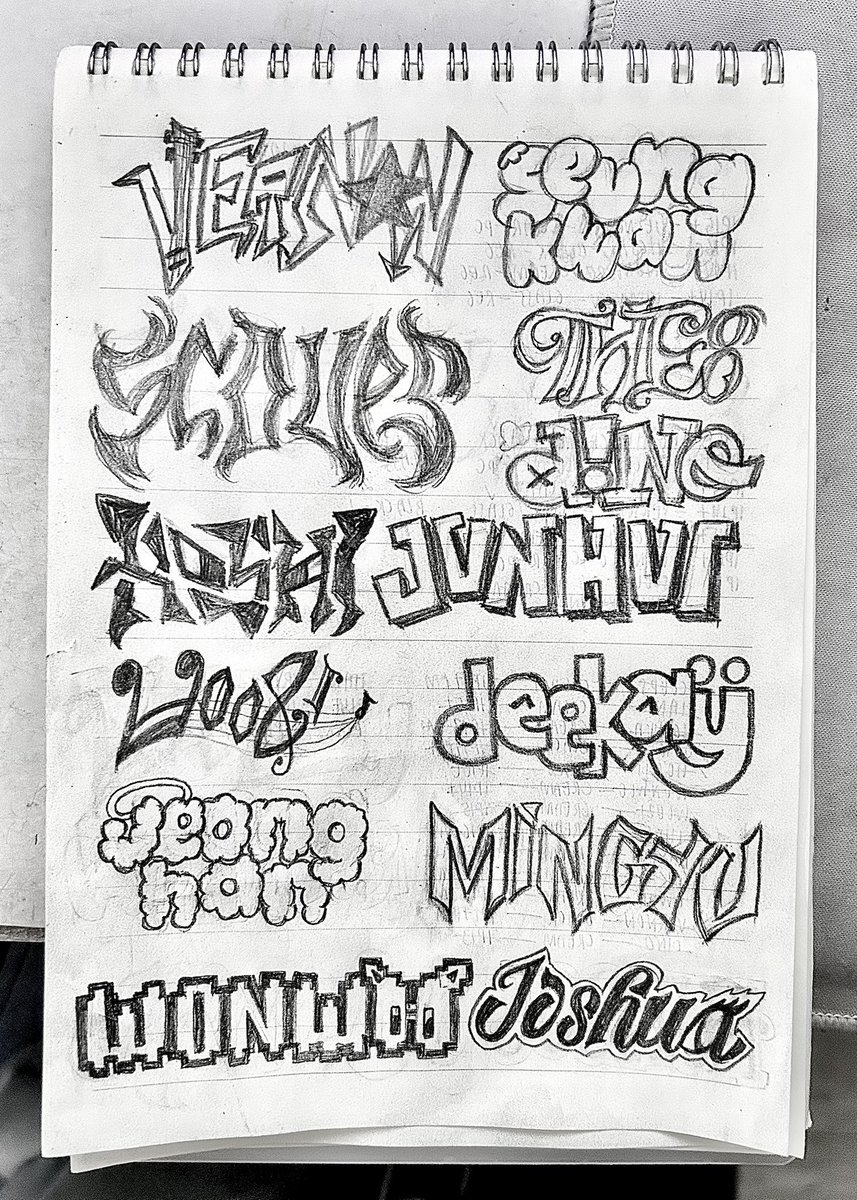 VERNON
seung
kwan
SCOUPS
THE8
d!NO
HOSHI
JUNHUI
WOOZI
deekay
Jeong
han
MINGYU
WONWOO
Joshua